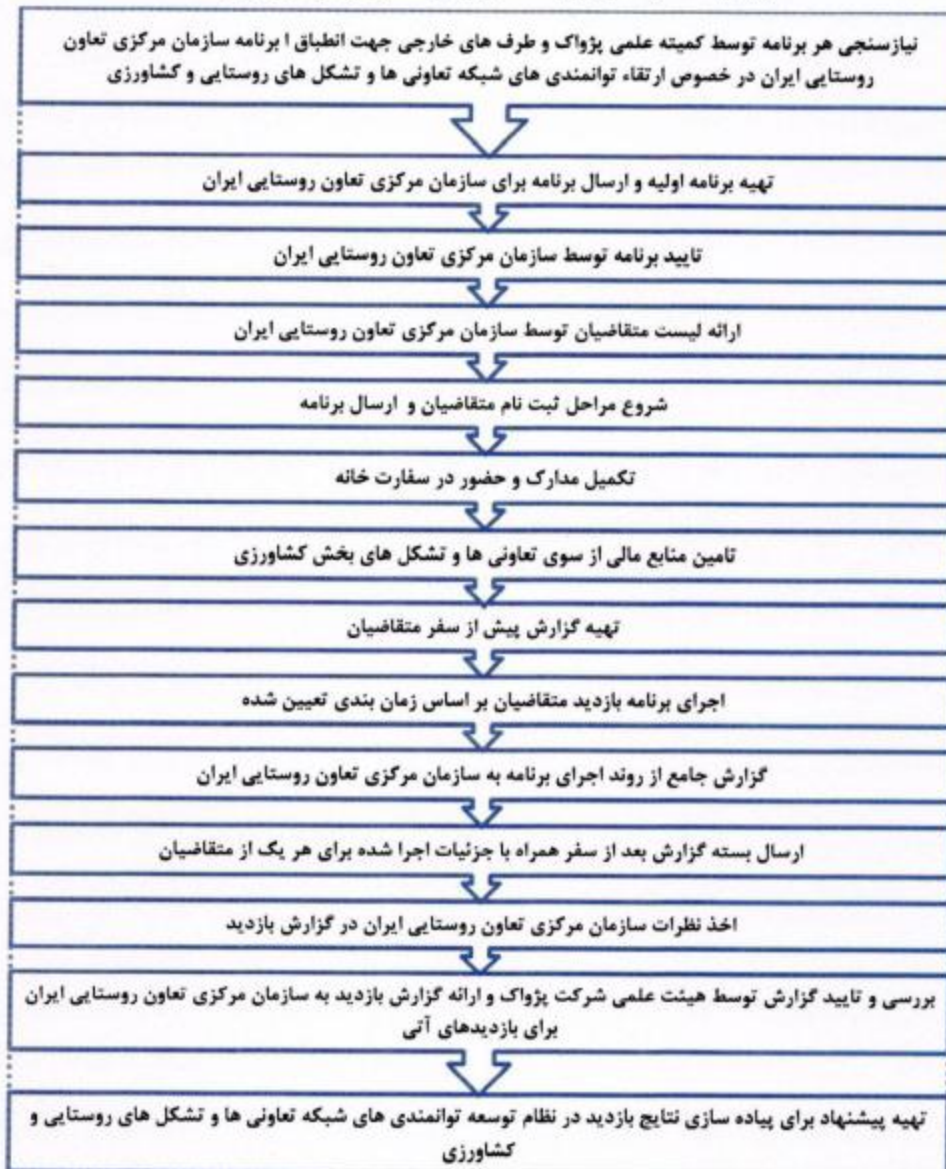 نیازسنجی هر برنامه توسط کمیته علمی پژواک و طرف های خارجی جهت انطباق ا برنامه سازمان مرکزی تعاون
روستایی ایران در خصوص ارتقاء توانمندی های شبکه تعاونی ها و تشکل های روستایی و کشاورزی
تهیه برنامه اولیه و ارسال برنامه برای سازمان مرکزی تعاون روستایی ایران
تایید برنامه توسط سازمان مرکزی تعاون روستایی ایران
ارائه لیست متقاضیان توسط سازمان مرکزی تعاون روستایی ایران
شروع مراحل ثبت نام متقاضیان و ارسال برنامه
تکمیل مدارک و حضور در سفارت خانه
تامین منابع مالی از سوی تعاونی ها و تشکل های بخش کشاورزی
تهیه گزارش پیش از سفر متقاضیان
اجرای برنامه بازدید متقاضیان بر اساس زمان بندی تعیین شده
گزارش جامع از روند اجرای برنامه به سازمان مرکزی تعاون روستایی ایران
ارسال بسته گزارش بعد از سفر همراه با جزئیات اجرا شده برای هر یک از متقاضیان
اخذ نظرات سازمان مرکزی تعاون روستایی ایران در گزارش بازدید
بررسی و تایید گزارش توسط هیئت علمی شرکت پژواک و ارائه گزارش بازدید به سازمان مرکزی تعاون روستایی ایران
برای بازدیدهای آتی
تهیه پیشنهاد برای پیاده سازی نتایج بازدید در نظام توسعه توانمندی های شبکه تعاونی ها و تشکل های روستایی و
کشاورزی